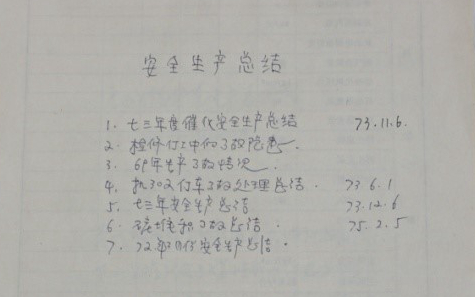 安全生产总结
1. 七三年度催化安全生产总结 73.11.6.
2. 检修行工中的事故隐患.
3. 69年生产事故情况.
4. 机302行车事故处理总结. 73.6.1
5. 七三年安全生产总结 73.12.6
6. 事故总结. 75.2.5
7. 72年 安全生产总结.